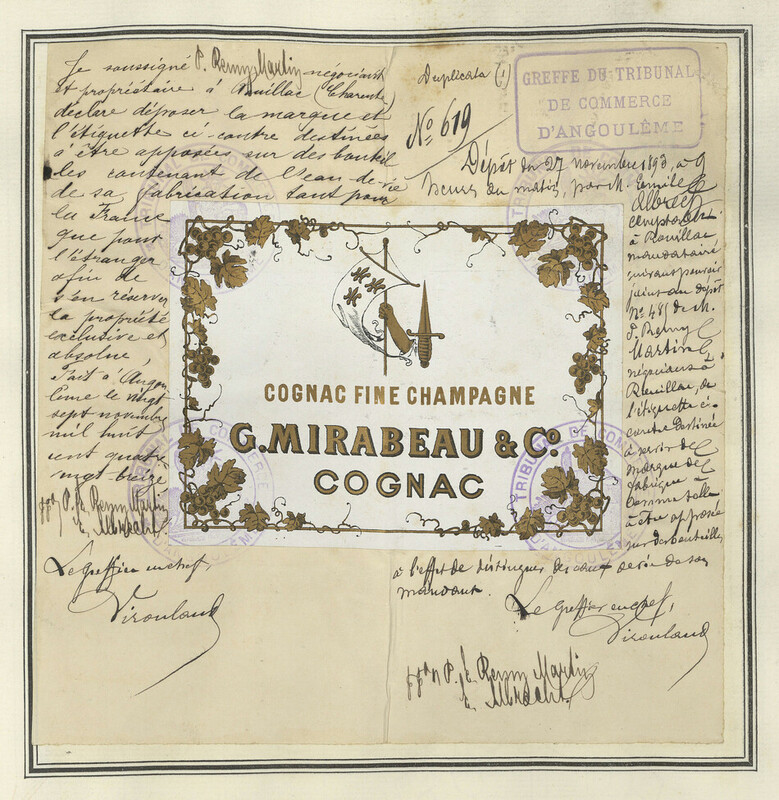 Je soussigné P. Remy Martin négociant
et propriétaire à Rouillac (Charente)
déclare déposer la marque et
l'étiquette ci-contre destinées
à être apposées sur des bouteil
les contenant de l'eau-de-vie
de sa fabrication tant pour
la France
que pour
l'étranger
afin de
s'en réserver
la propriété
exclusive et
absolue,
Fait à Angou
lême le vingt
sept novembre
mil huit
cent quatre
vingt treize
Le Greffier en chef,
Duplicata (1)
No 619
GREFFE DU TRIBUNAL
DE COMMERCE
D'ANGOULÊME
Dépôt du 27 novembre 1893, à 9
heures du matin, par M. Emile
comptable
à Rouillac
mandataire
suivant pouvoir
joint au dépôt
No 485 de M.
P. Remy
Martin
négociant à
Rouillac, de
l'étiquette ci-
contre destinée
à servir de
marque de
fabrique &
comme telle
à être apposée
sur des bouteilles
à l'effet de distinguer les eaux de vie de son
mandant.
Le Greffier en chef,
P. Remy Martin
COGNAC FINE CHAMPAGNE
G. MIRABEAU & Co.
COGNAC
TRIBUNAL DE COMMERCE
D'ANGOULÊME